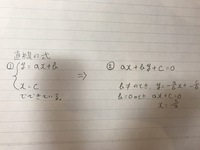 直線の式
① { y = ax + b
x = c
でできている。
⇒
② ax + by + c = 0
b≠0のとき y = -a/b x - c/b
b=0のとき ax + c = 0